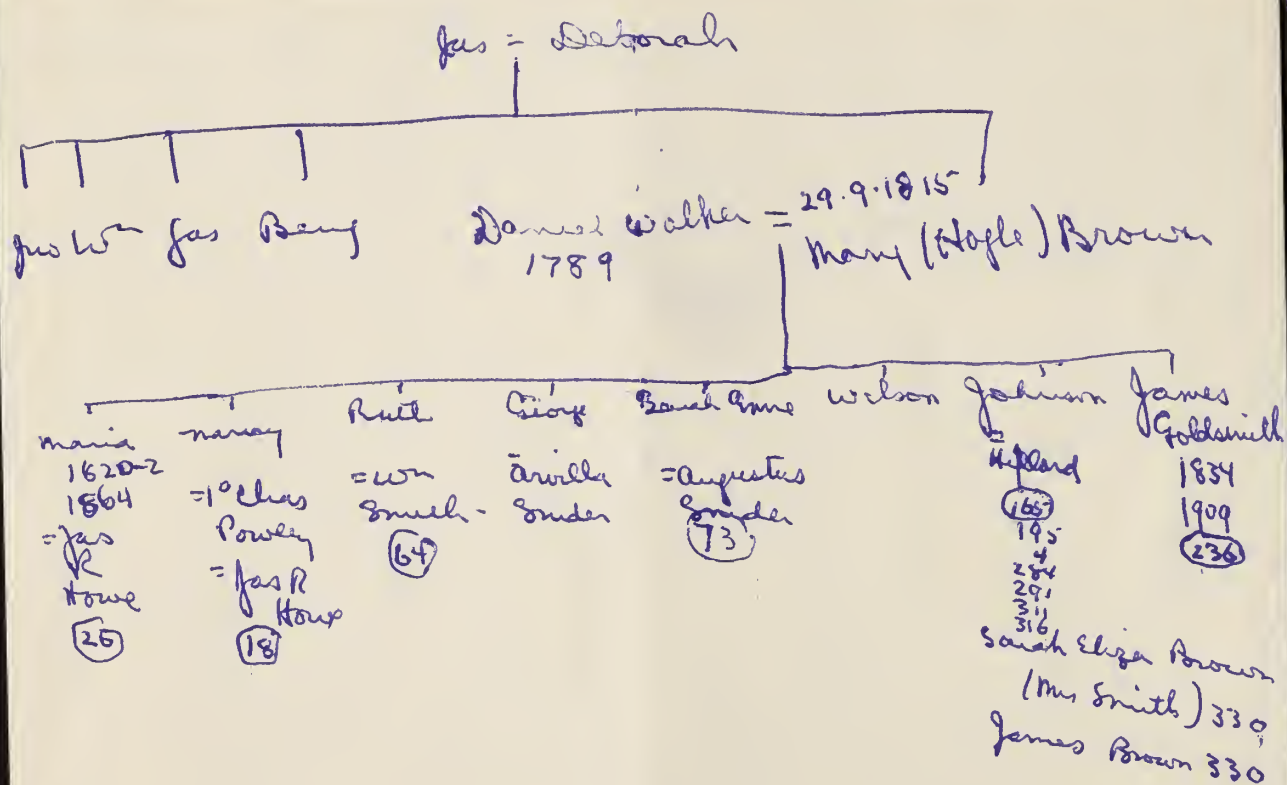 Jas = Deborah
Jno Wm Jas Benj
Daniel Walker = 29.9.1815
1789
Mary (Hogle) Brown
Maria
1820-2
1864
=Jas
R
Howe
26
Nancy
=1º Chas
Powley
=Jas R
Howe
18
Ruth
=Wm
Smith-
64
George
=Arvilla
Snider
Sarah Anne
=Augustus
Snyder
73
Wilson
Johnson
=
165
195
4
284
291
311
316
James
Goldsmith
1834
1909
236
Sarah Eliza Brown
(Mrs Smith) 330
James Brown 330